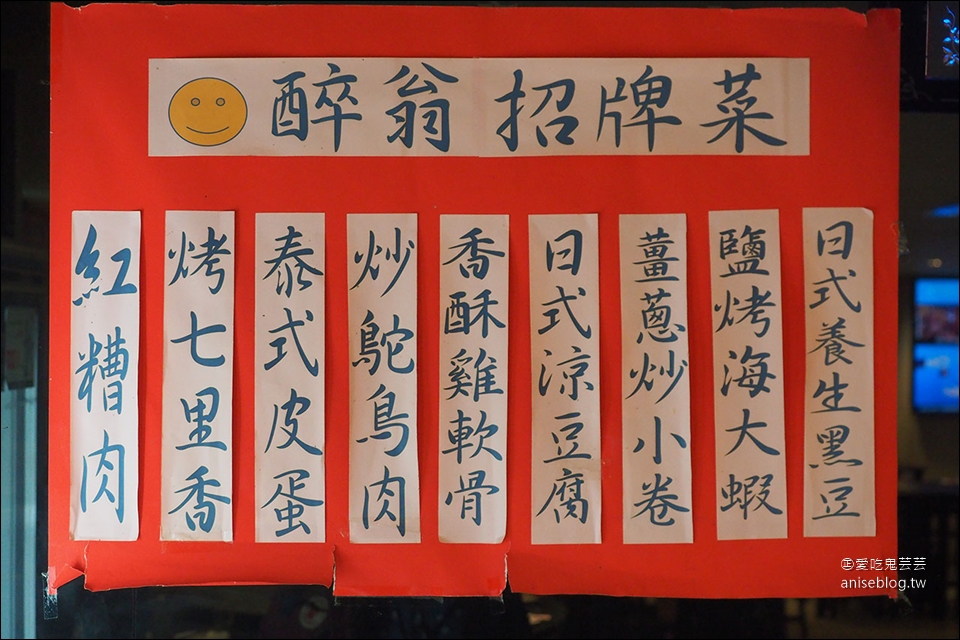 醉翁招牌菜
日式養生黑豆
鹽烤海大蝦
薑蔥炒小卷
日式涼豆腐
香酥雞軟骨
炒鴕鳥肉
泰式皮蛋
烤七里香
紅糟肉
愛吃鬼芸芸
aniseblog.tw